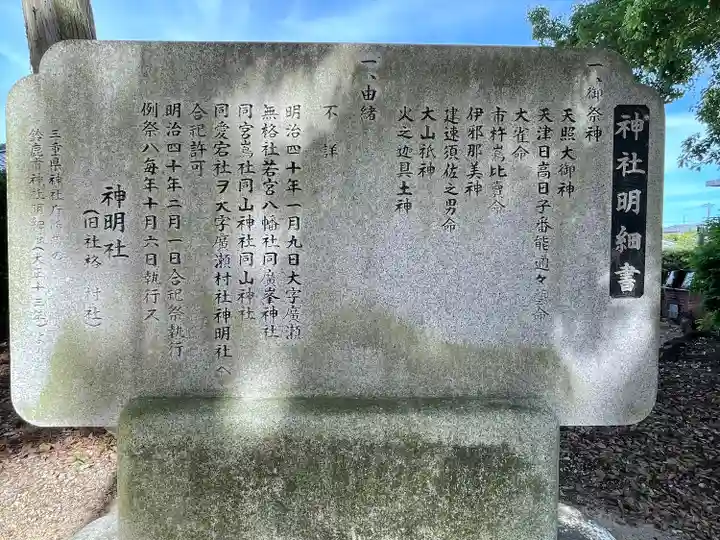 神社明細書
一、御祭神
天照大御神
天津日高日子番能迩々芸命
大雀命
市杵嶋比賣命
伊邪那美神
建速須佐之男命
大山祇神
火之迦具土神
一、由緒
不詳
明治四十年一月九日大字廣瀬
無格社若宮八幡社同廣峯神社
同宮嶌社同山神社同山神社
同愛宕社ヲ大字廣瀬村社神明社へ
合祀許可
明治四十年二月一日合祀祭執行
例祭八毎年十月六日執行ス
神明社
(旧社格 村社)
三重県神社庁
鈴鹿郡神社明細(大正十三年)より